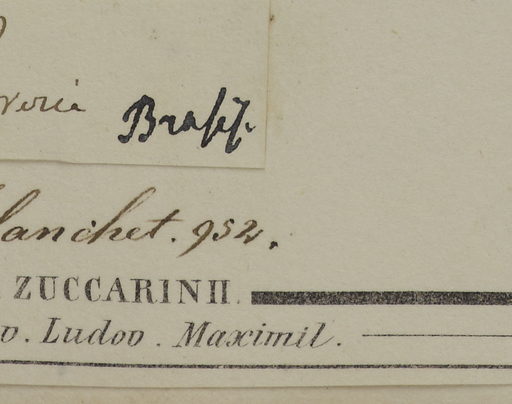 Brasil.
lanchet. 952.
ZUCCARINII.
v. Ludov. Maximil.